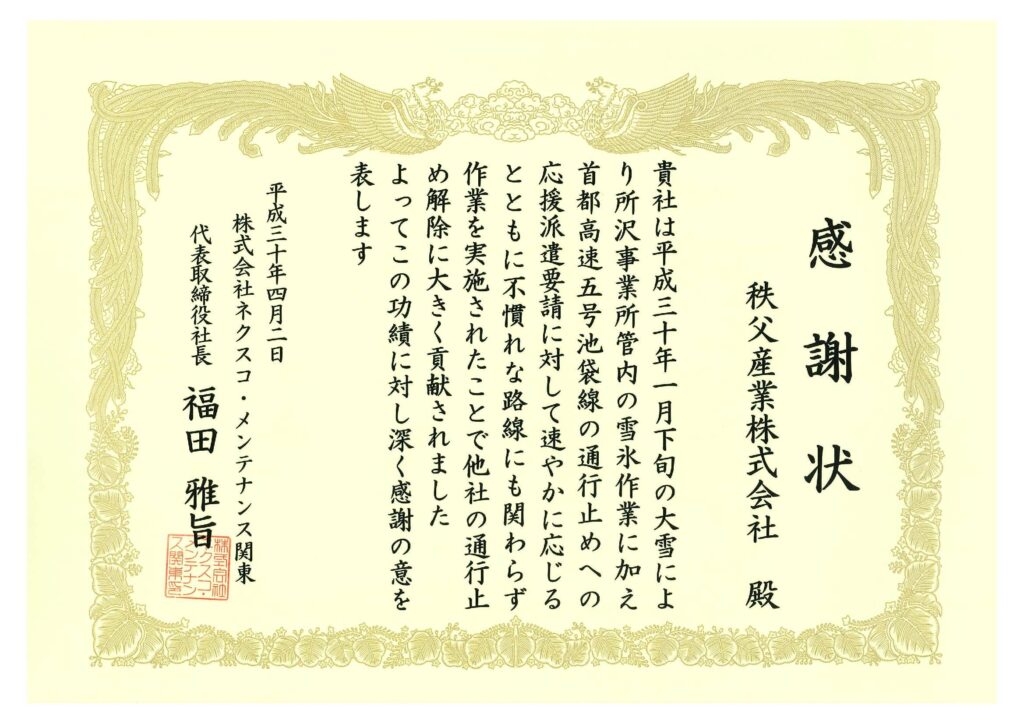 感謝状
秩父産業株式会社 殿
貴社は平成三十年一月下旬の大雪によ
り所沢事業所管内の雪氷作業に加え
首都高速五号池袋線の通行止めへの
応援派遣要請に対して速やかに応じる
とともに不慣れな路線にも関わらず
作業を実施されたことで他社の通行止
め解除に大きく貢献されました
よってこの功績に対し深く感謝の意を
表します
平成三十年四月二日
株式会社ネクスコ・メンテナンス関東
代表取締役社長 福田 雅旨
株式会社
ネクスコ・
メンテナン
ス関東印